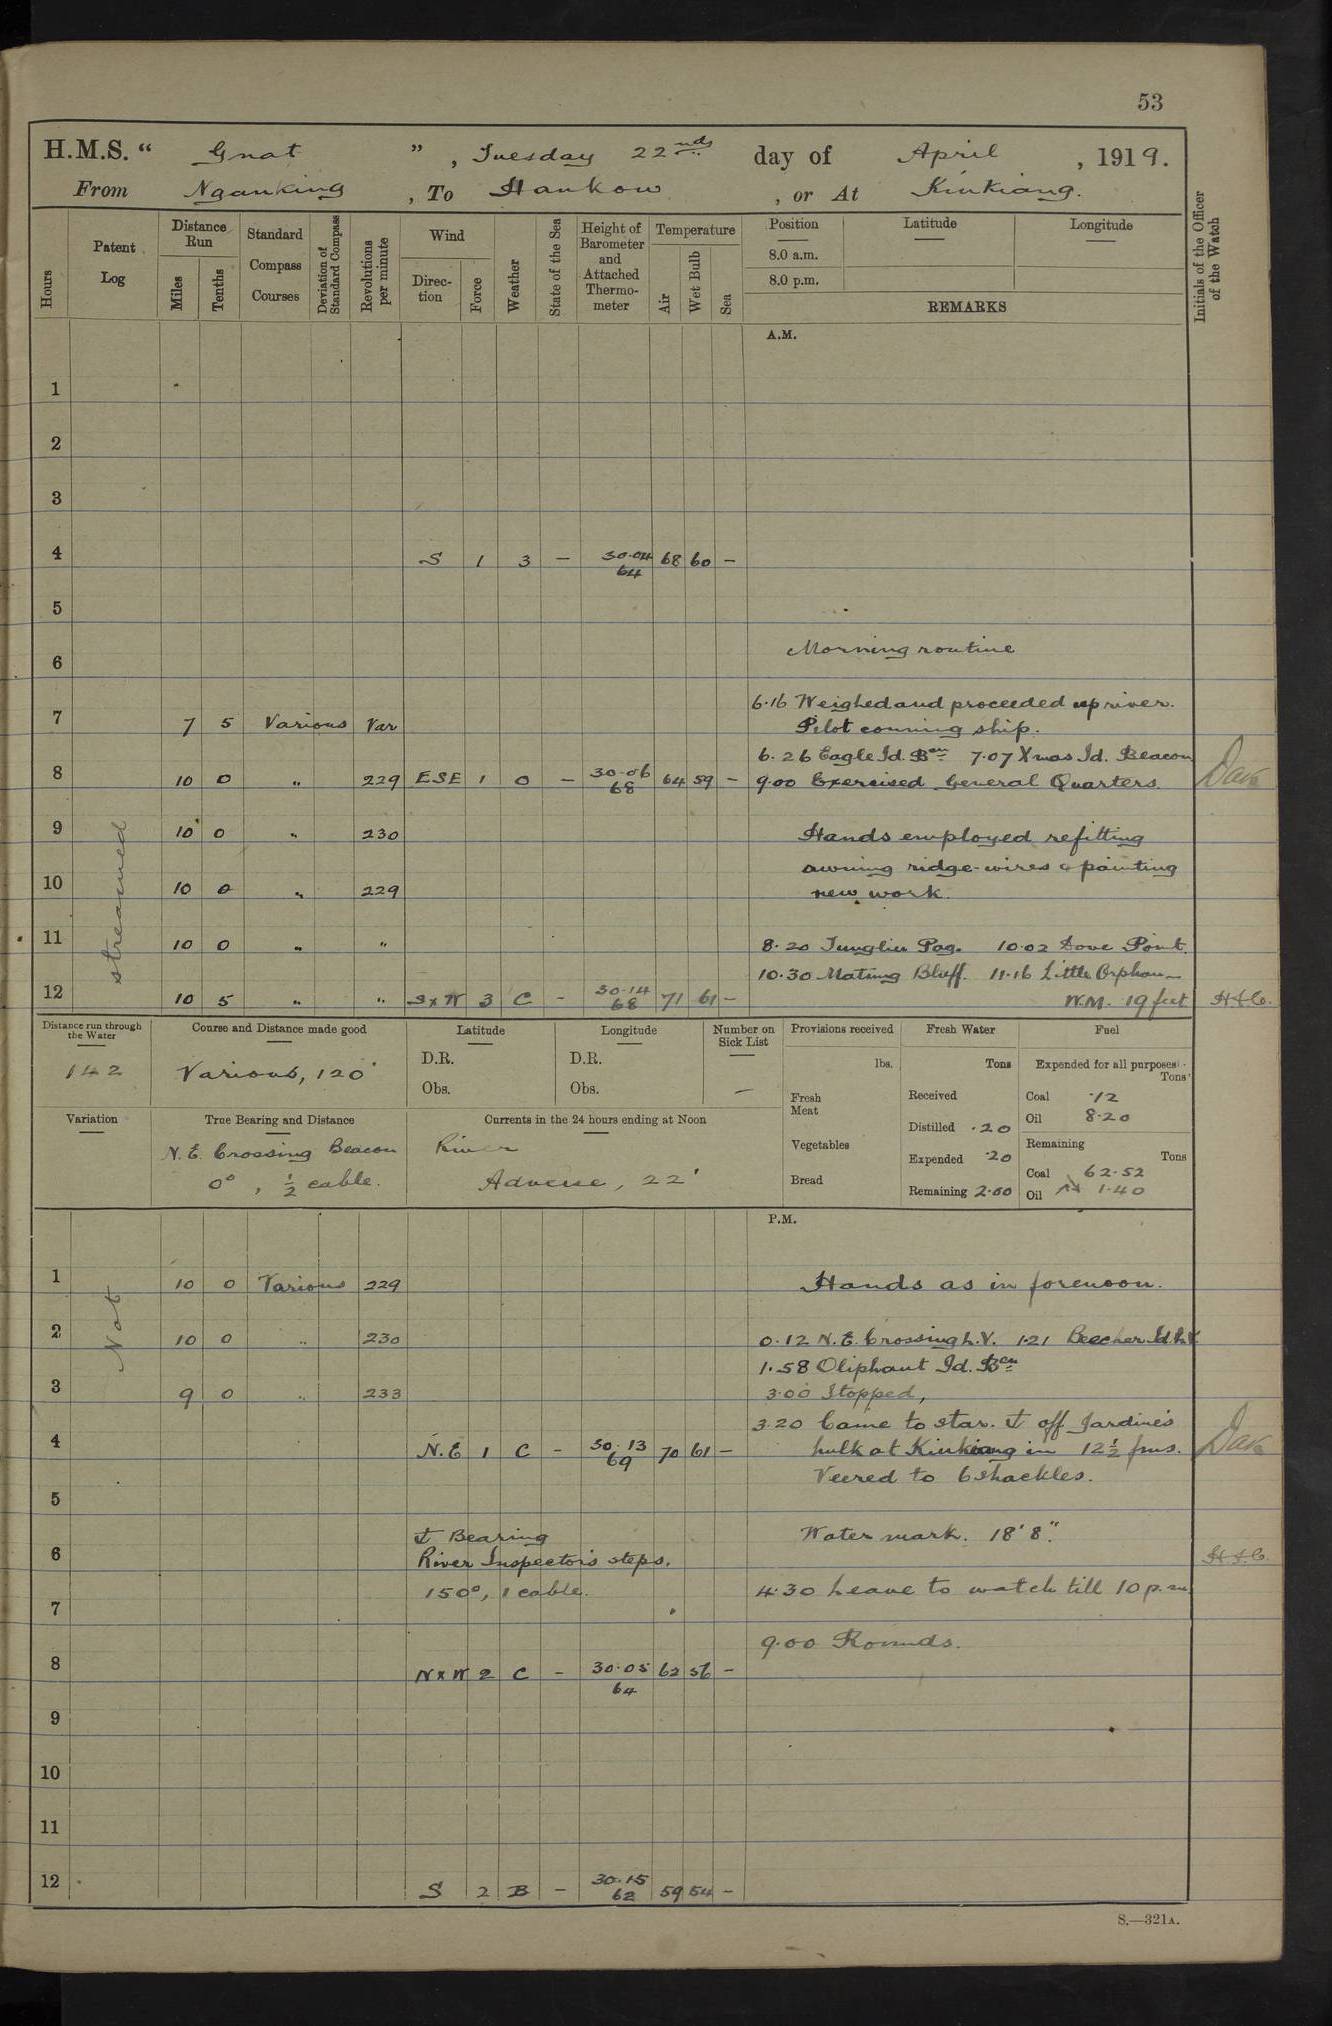 53
H.M.S. “ Gnat ” , Tuesday 22nd day of April , 1919.
From Nganking , To Hankow , or At Kiukiang.
Hours
Patent Log
Distance Run
Miles
Tenths
Standard Compass Courses
Deviation of Standard Compass
Revolutions per minute
Wind
Direction
Force
Weather
State of the Sea
Height of Barometer and Attached Thermometer
Temperature
Air
Wet Bulb
Sea
Position
8.0 a.m.
8.0 p.m.
Latitude
Longitude
REMARKS
Initials of the Officer of the Watch
A.M.
1
2
3
4 S 1 3 – 30.04 64 68 60 –
5
6 Morning routine
6.16 Weighed and proceeded up river.
7 7 5 Various Var Pilot conning ship.
6.26 Eagle Id. Bcn 7.07 Xmas Id. Beacon
8 10 0 „ 229 ESE 1 0 – 30.06 68 64 59 – 9.00 Exercised General Quarters.
9 10 0 „ 230 Hands employed refitting
awning ridge-wires & painting
10 10 0 „ 229 new work.
11 10 0 „ „ 8.20 Tungliu Pag. 10.02 Dove Point.
10.30 Mating Bluff. 11.16 Little Orphan
12 10 5 „ „ SxW 3 C – 30.14 68 71 61 – W.M. 19 feet
streamed
Distance run through the Water
142
Course and Distance made good
Various, 120'
Latitude
D.R.
Obs.
Longitude
D.R.
Obs.
Number on Sick List
–
Provisions received
lbs.
Fresh Meat
Vegetables
Bread
Fresh Water
Tons
Received
Distilled .20
Expended .20
Remaining 2.60
Fuel
Expended for all purposes
Tons
Coal .12
Oil 8.20
Remaining
Tons
Coal 62.52
Oil 1.40
Variation
True Bearing and Distance
N.E. Crossing Beacon
0°, ½ cable.
Currents in the 24 hours ending at Noon
River
Adverse, 22'
P.M.
Not
1 10 0 Various 229 Hands as in forenoon.
2 10 0 „ 230 0.12 N.E. Crossing L.V. 1.21 Beecher Id. L.V.
1.58 Oliphant Id. Bcn
3 9 0 „ 233 3.00 Stopped,
3.20 Came to star. ⚓ off Jardine's
4 N.E 1 C – 30.13 69 70 61 – hulk at Kiukiang in 12½ fms.
Veered to 6 shackles.
5
⚓ Bearing Water mark. 18' 8".
6 River Inspector's steps.
150°, 1 cable. 4.30 Leave to watch till 10 p.m.
7
9.00 Rounds.
8 NxW 2 C – 30.05 64 62 56 –
9
10
11
12 S 2 B – 30.15 62 59 54 –
S.—321A.